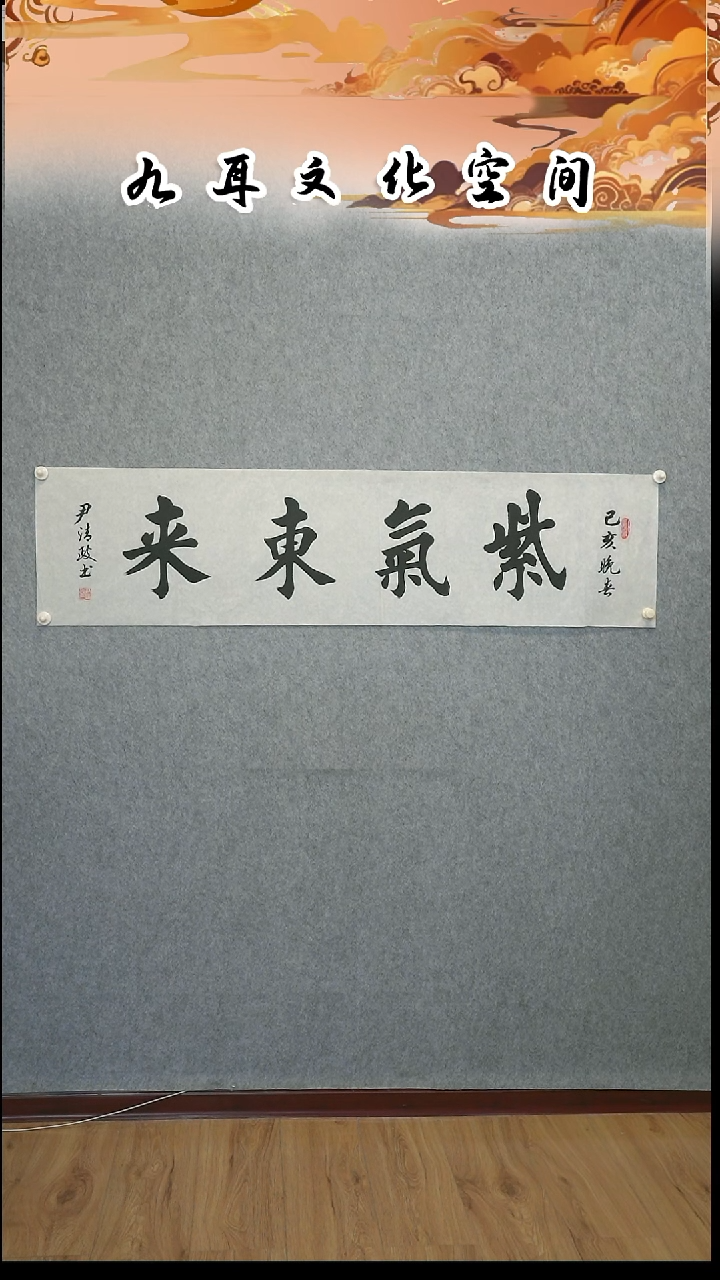 九耳文化空间
己亥晚春
紫氣東来
尹清政书